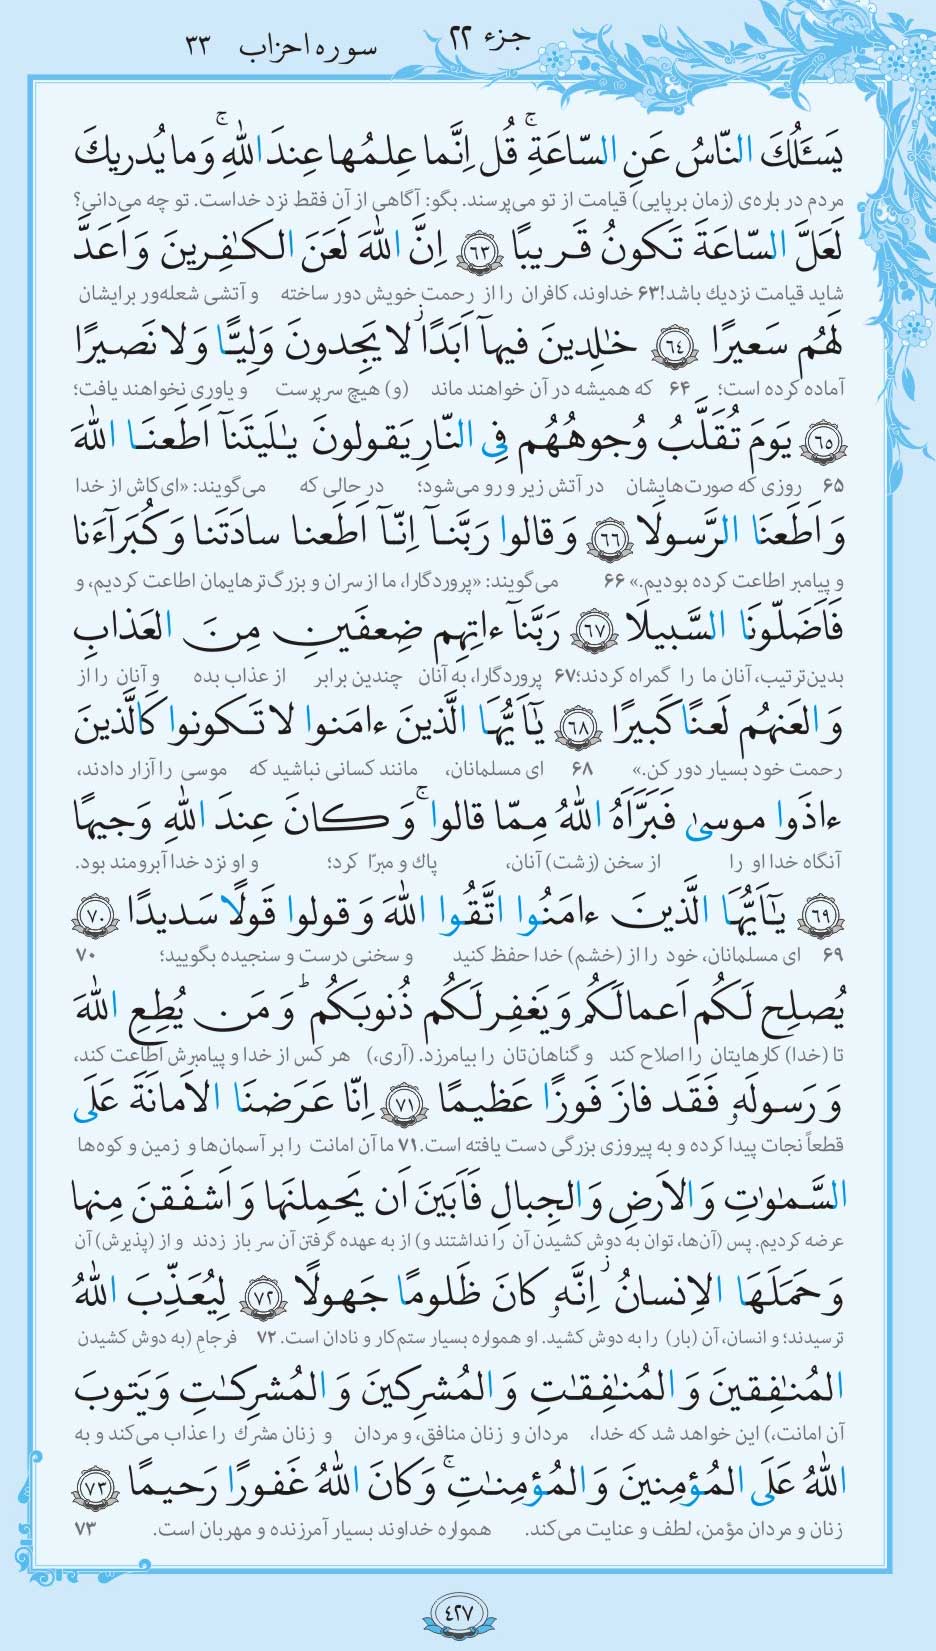 جزء ۲۲
سوره احزاب ۳۳
يَسـَٔلُكَ النّاسُ عَنِ السّاعَةِ ۚ قُل اِنَّما عِلمُها عِندَ اللّٰهِ ۚ وَما يُدريكَ
مردم در باره‌ی (زمان برپایی) قیامت از تو می‌پرسند. بگو: آگاهی از آن فقط نزد خداست. تو چه می‌دانی؟
لَعَلَّ السّاعَةَ تَكونُ قَريبًا ﴿٦٣﴾ اِنَّ اللّٰهَ لَعَنَ الكٰفِرينَ وَاَعَدَّ
شاید قیامت نزدیك باشد!۶۳ خداوند، کافران را از رحمت خویش دور ساخته و آتشی شعله‌ور برایشان
لَهُم سَعيرًا ﴿٦٤﴾ خٰلِدينَ فيهآ اَبَدًا ۖ لا يَجِدونَ وَلِيًّا وَلا نَصيرًا
آماده کرده است؛ ۶۴ که همیشه در آن خواهند ماند (و) هیچ سرپرست و یاوری نخواهند یافت؛
﴿٦٥﴾ يَومَ تُقَلَّبُ وُجوهُهُم فِى النّارِ يَقولونَ يٰلَيتَنآ اَطَعنَا اللّٰهَ
۶۵ روزی که صورت‌هایشان در آتش زیر و رو می‌شود؛ در حالی که می‌گویند: «ای‌کاش از خدا
وَاَطَعنَا الرَّسولَا ﴿٦٦﴾ وَقالوا رَبَّنآ اِنّآ اَطَعنا سادَتَنا وَكُبَرآءَنا
و پیامبر اطاعت کرده بودیم.» ۶۶ می‌گویند: «پروردگارا، ما از سران و بزرگ‌ترهایمان اطاعت کردیم، و
فَاَضَلّونَا السَّبيلَا ﴿٦٧﴾ رَبَّنآ ءاتِهِم ضِعفَينِ مِنَ العَذابِ
بدین‌ترتیب، آنان ما را گمراه کردند؛۶۷ پروردگارا، به آنان چندین برابر از عذاب بده و آنان را از
وَالعَنهُم لَعنًا كَبيرًا ﴿٦٨﴾ يٰٓاَيُّهَا الَّذينَ ءامَنوا لا تَكونوا كَالَّذينَ
رحمت خود بسیار دور کن.» ۶۸ ای مسلمانان، مانند کسانی نباشید که موسی را آزار دادند،
ءاذَوا موسىٰ فَبَرَّاَهُ اللّٰهُ مِمّا قالوا ۚ وَكانَ عِندَ اللّٰهِ وَجيهًا
آنگاه خدا او را از سخن (زشت) آنان، پاك و مبرّا کرد؛ و او نزد خدا آبرومند بود.
﴿٦٩﴾ يٰٓاَيُّهَا الَّذينَ ءامَنُوا اتَّقُوا اللّٰهَ وَقولوا قَولًا سَديدًا ﴿٧٠﴾
۶۹ ای مسلمانان، خود را از (خشم) خدا حفظ کنید و سخنی درست و سنجیده بگویید؛ ۷۰
يُصلِح لَكُم اَعمالَكُم وَيَغفِر لَكُم ذُنوبَكُم ؕ وَمَن يُطِعِ اللّٰهَ
تا (خدا) کارهایتان را اصلاح کند و گناهان‌تان را بیامرزد. (آری،) هر کس از خدا و پیامبرش اطاعت کند،
وَرَسولَهٗ فَقَد فازَ فَوزًا عَظيمًا ﴿٧١﴾ اِنّا عَرَضنَا الاَمانَةَ عَلَى
قطعاً نجات پیدا کرده و به پیروزی بزرگی دست یافته است.۷۱ ما آن امانت را بر آسمان‌ها و زمین و کوه‌ها
السَّمٰوٰتِ وَالاَرضِ وَالجِبالِ فَاَبَينَ اَن يَحمِلنَها وَاَشفَقنَ مِنها
عرضه کردیم. پس (آن‌ها، توان به دوش کشیدن آن را نداشتند و) از به عهده گرفتن آن سر باز زدند و از (پذیرش) آن
وَحَمَلَهَا الاِنسانُ ۖ اِنَّهٗ كانَ ظَلومًا جَهولًا ﴿٧٢﴾ لِيُعَذِّبَ اللّٰهُ
ترسیدند؛ و انسان، آن (بار) را به دوش کشید. او همواره بسیار ستم‌کار و نادان است. ۷۲ فرجامِ (به دوش کشیدن
المُنٰفِقينَ وَالمُنٰفِقٰتِ وَالمُشرِكينَ وَالمُشرِكٰتِ وَيَتوبَ
آن امانت،) این خواهد شد که خدا، مردان و زنان منافق، و مردان و زنان مشرك را عذاب می‌کند و به
اللّٰهُ عَلَى المُؤمِنينَ وَالمُؤمِنٰتِ ۚ وَكانَ اللّٰهُ غَفورًا رَحيمًا ﴿٧٣﴾
زنان و مردان مؤمن، لطف و عنایت می‌کند. همواره خداوند بسیار آمرزنده و مهربان است. ۷۳
٤٢٧